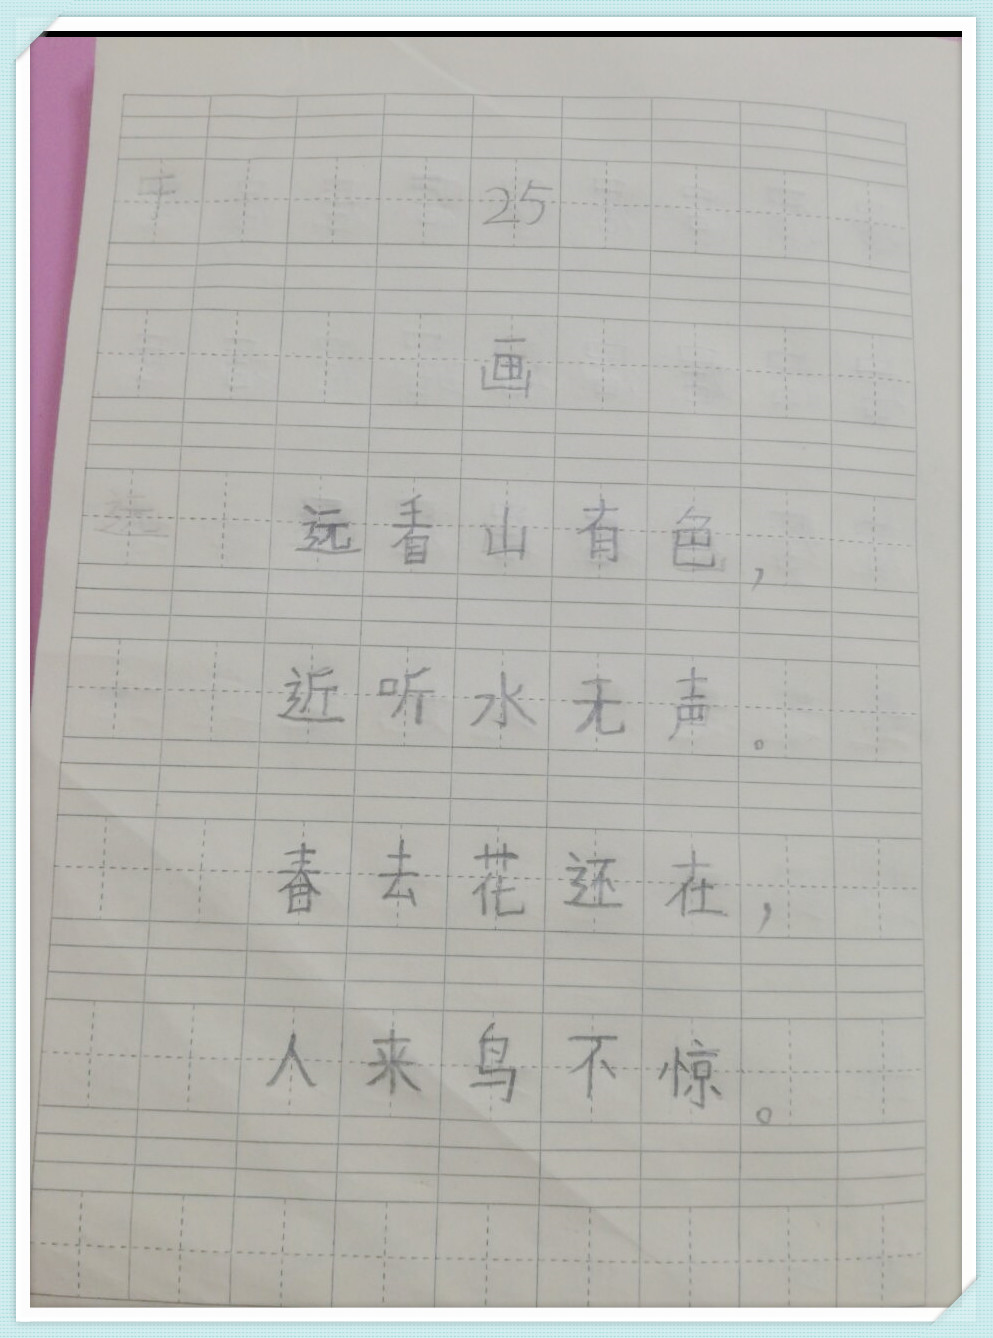 25
画
远看山有色，
近听水无声。
春去花还在，
人来鸟不惊。